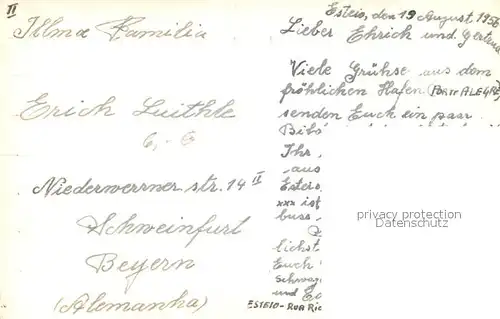 II
Illma Familia
Erich Luithle
6,-6
Niederwerrner str. 14 II
Schweinfurt
Beyern
(Alemanha)
Esteio, den 19 August, 1956
Lieber Ehrich und Gertrud
Viele Grühse aus dem
fröhlichen Hafen (PORTO ALEGRE)
senden Euch ein paar
Bibs
Ihr
aus
Esteio,
xxx ist
buss
lichst
Euch
schwag
und Ec
ESTEIO - RUA RIC
privacy protection
Datenschutz